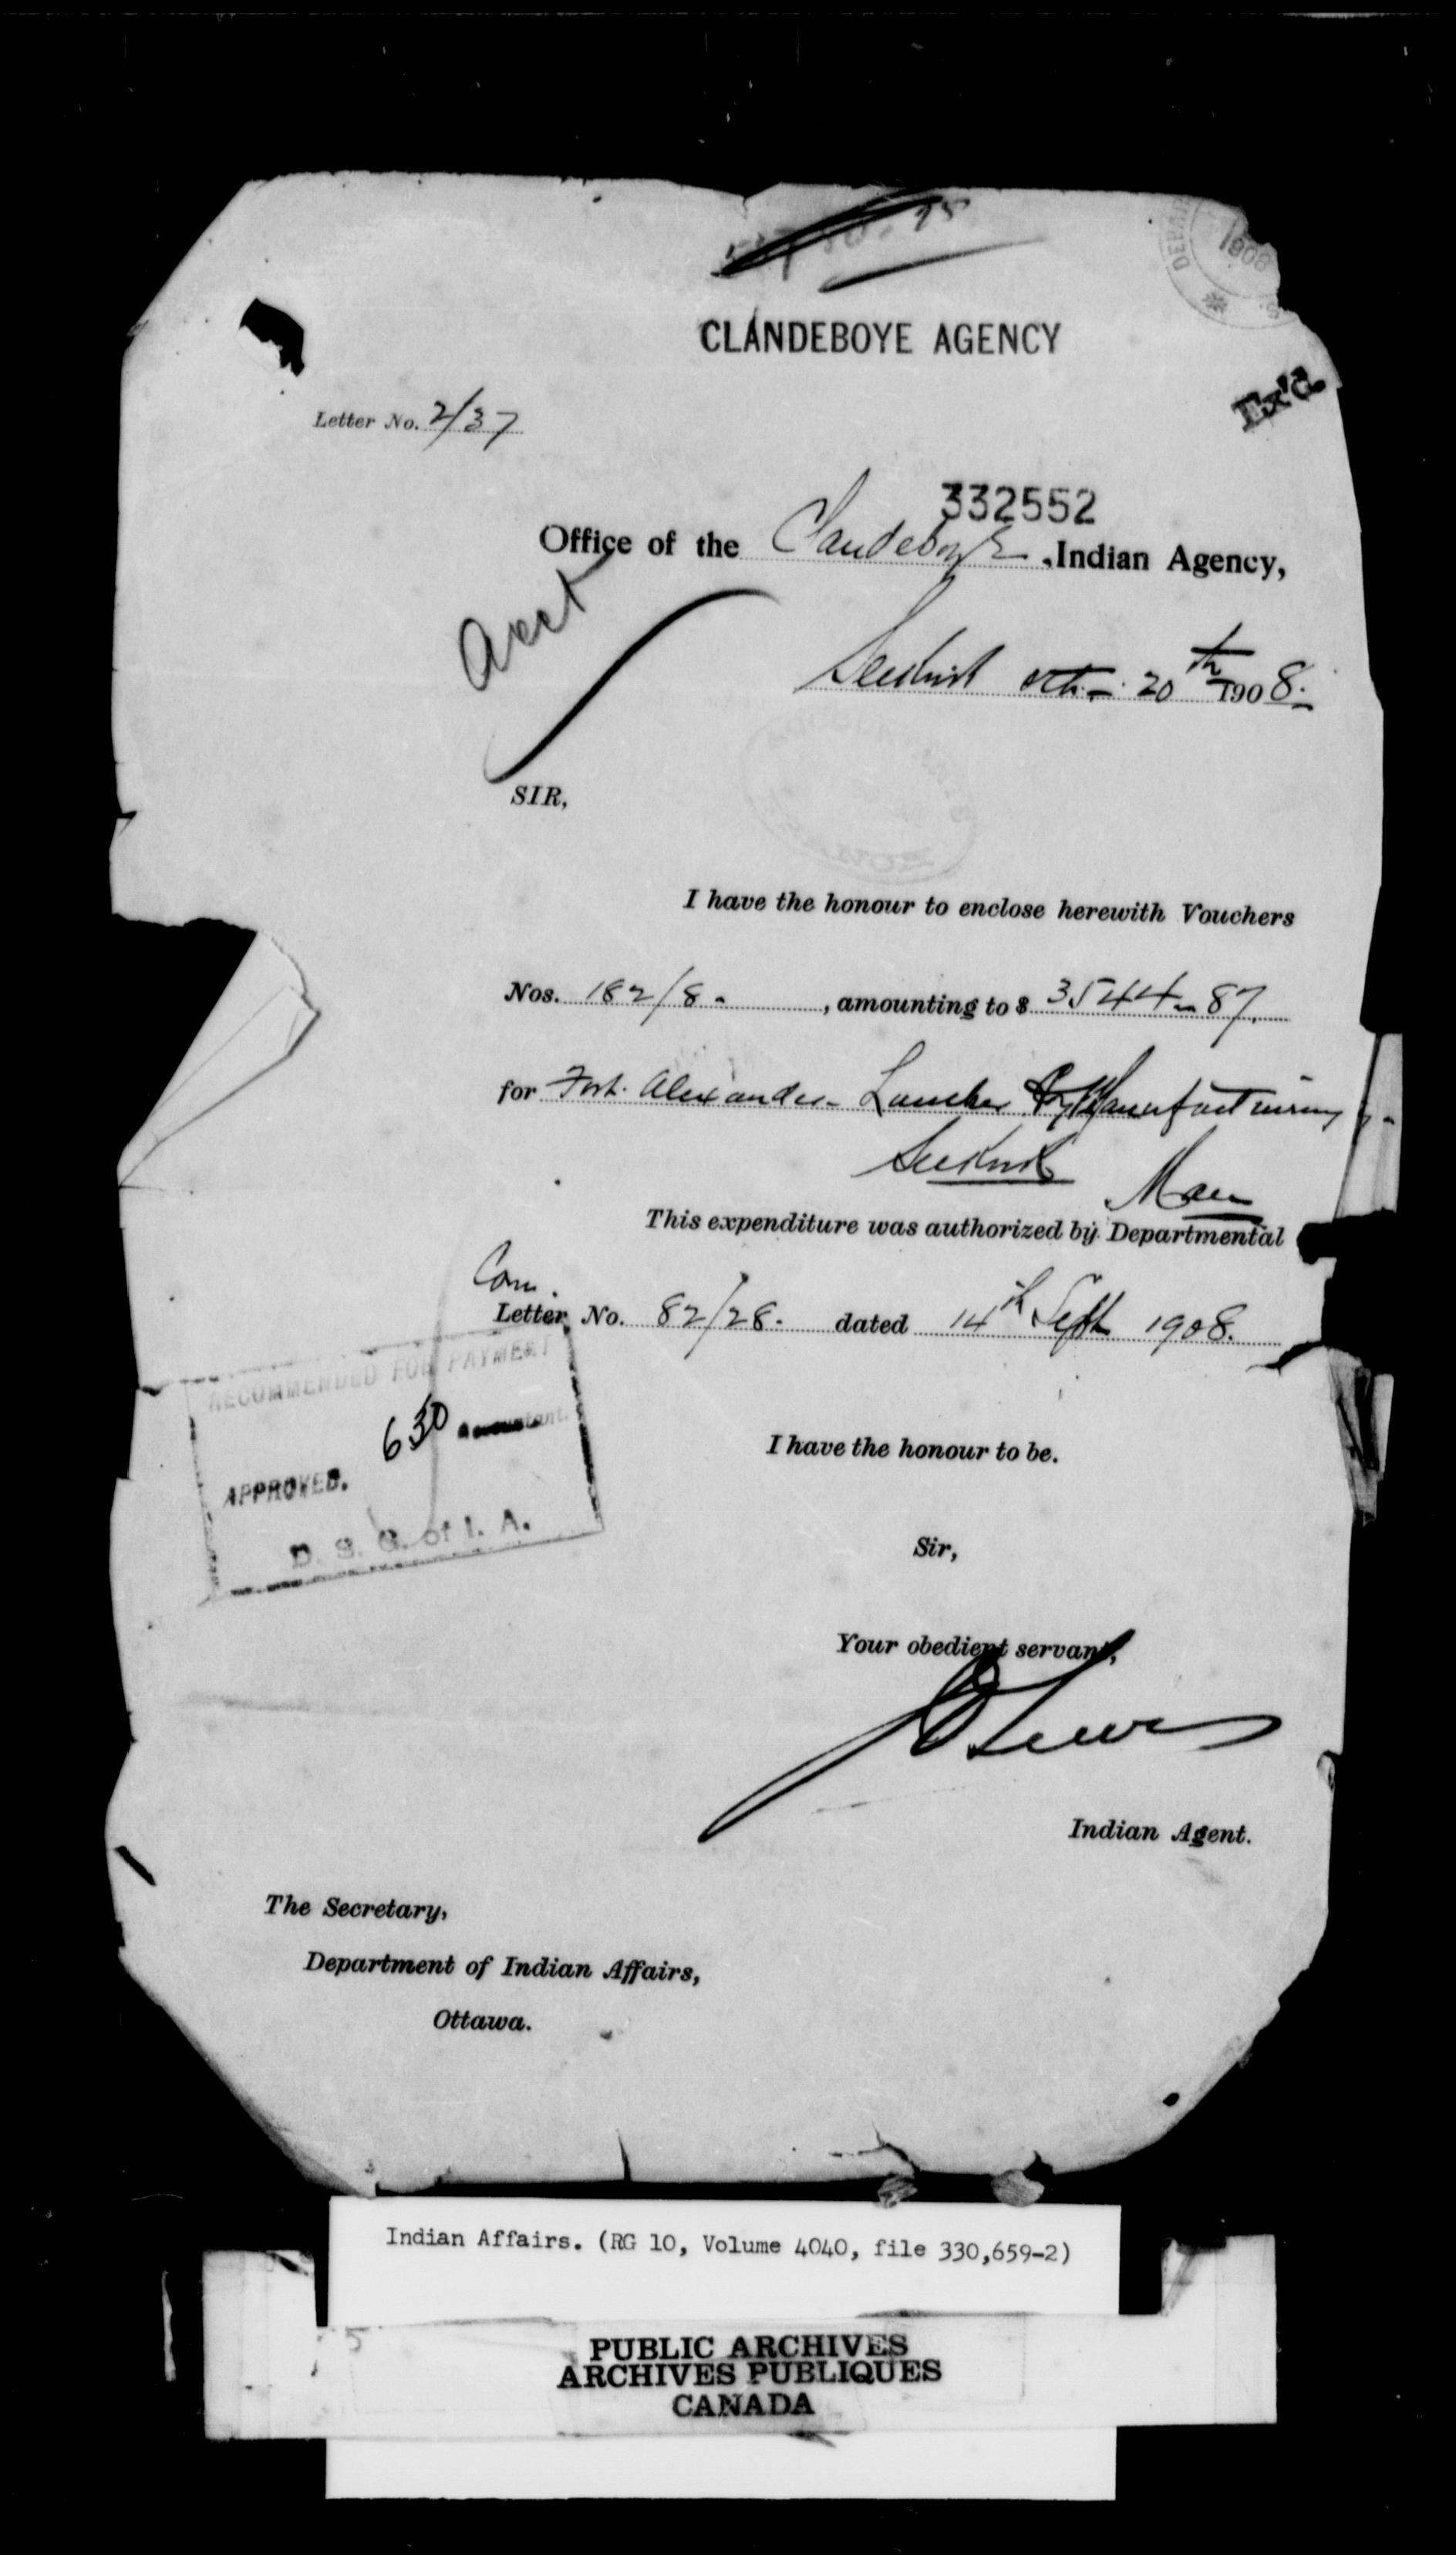 1908
CLANDEBOYE AGENCY
Ex'd.
Letter No. 2/37
332552
Office of the Clandeboye, Indian Agency,
Acct
Selkirk Oct. 20th 1908.
SIR,
I have the honour to enclose herewith Vouchers
Nos. 182/8. , amounting to $ 3544.87.
for Fort Alexander - Lumber Manufacturing
Selkirk Man
This expenditure was authorized by Departmental
Com.
Letter No. 82/28. dated 14th Sept 1908.
RECOMMENDED FOR PAYMENT
630 Accountant.
APPROVED.
D. S. G. of I. A.
I have the honour to be.
Sir,
Your obedient servant,
Indian Agent.
The Secretary,
Department of Indian Affairs,
Ottawa.
Indian Affairs. (RG 10, Volume 4040, file 330,659-2)
PUBLIC ARCHIVES
ARCHIVES PUBLIQUES
CANADA